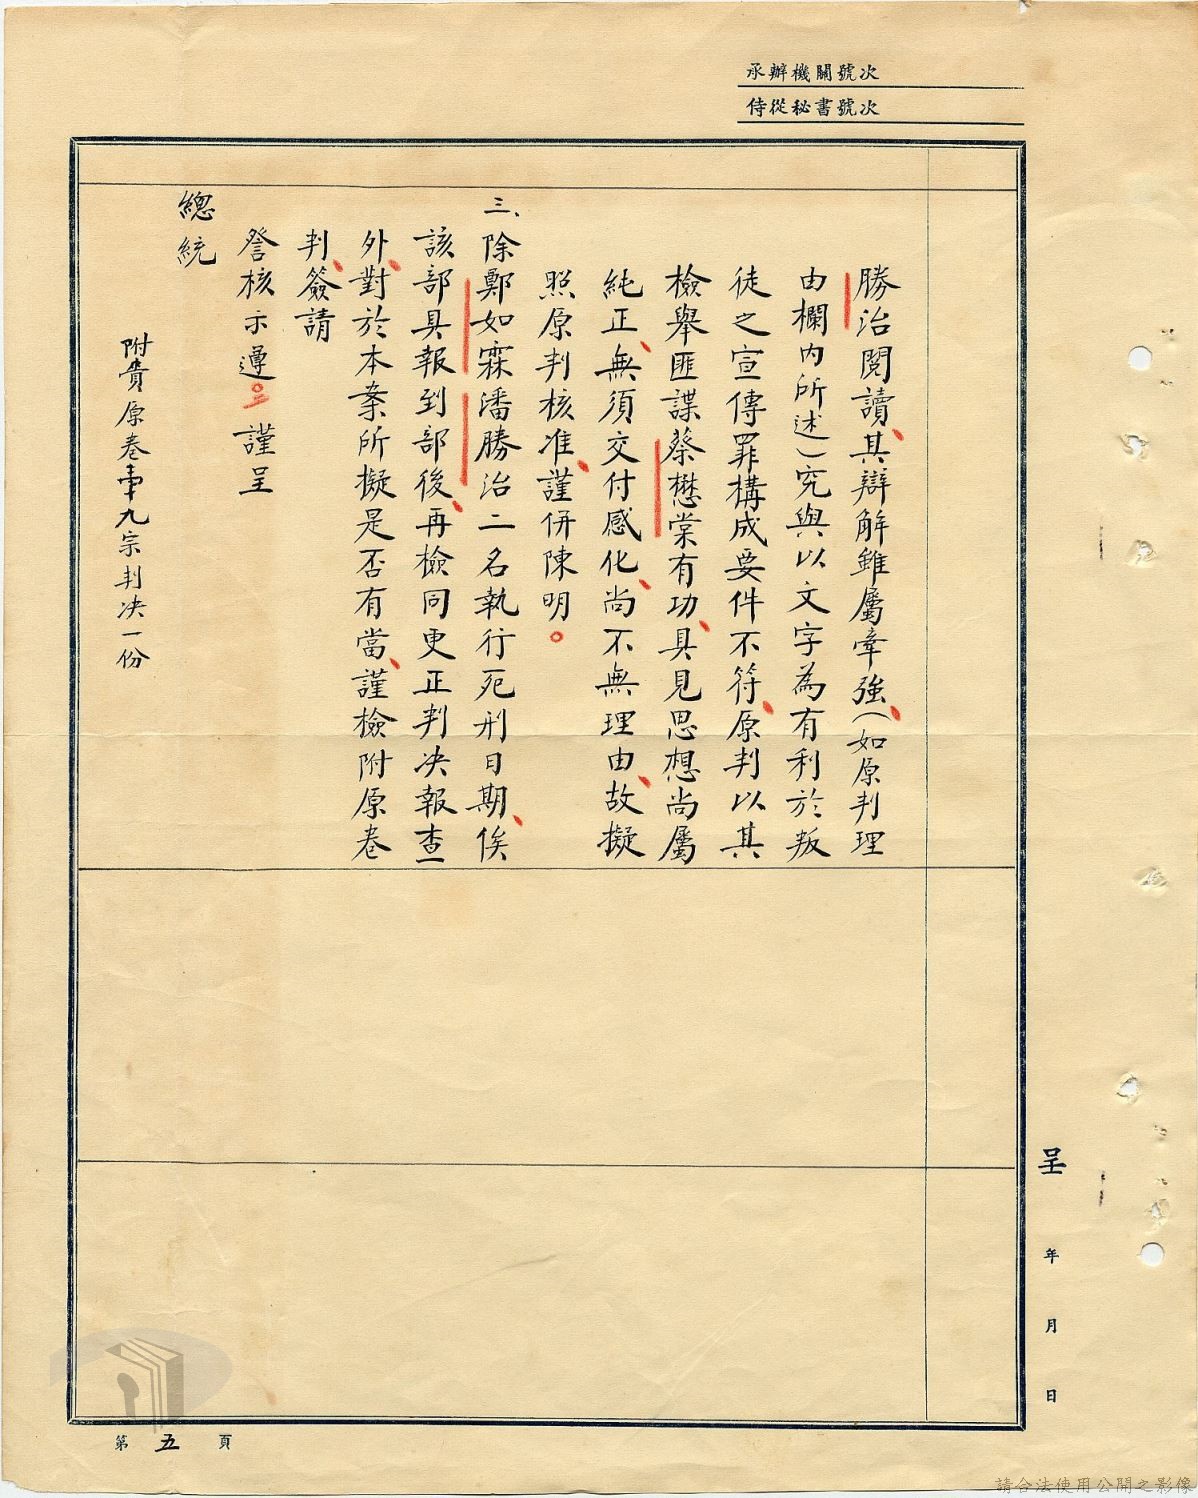 承辦機關號次
侍從秘書號次
勝治閱讀、其辯解雖屬牽強、(如原判理
由欄內所述)究與以文字為有利於叛
徒之宣傳罪構成要件不符、原判以其
檢舉匪諜蔡懋棠有功、具見思想尚屬
純正、無須交付感化、尚不無理由、故擬
照原判核准、謹併陳明。
三、除鄭如霖潘勝治二名執行死刑日期、俟
該部具報到部後、再檢同更正判決報查
外、對於本案所擬是否有當、謹檢附原卷
判、簽請
詧核示遵。謹呈
總統
附賚原卷九宗判決一份
呈 年 月 日
第五頁
請合法使用公開之影像